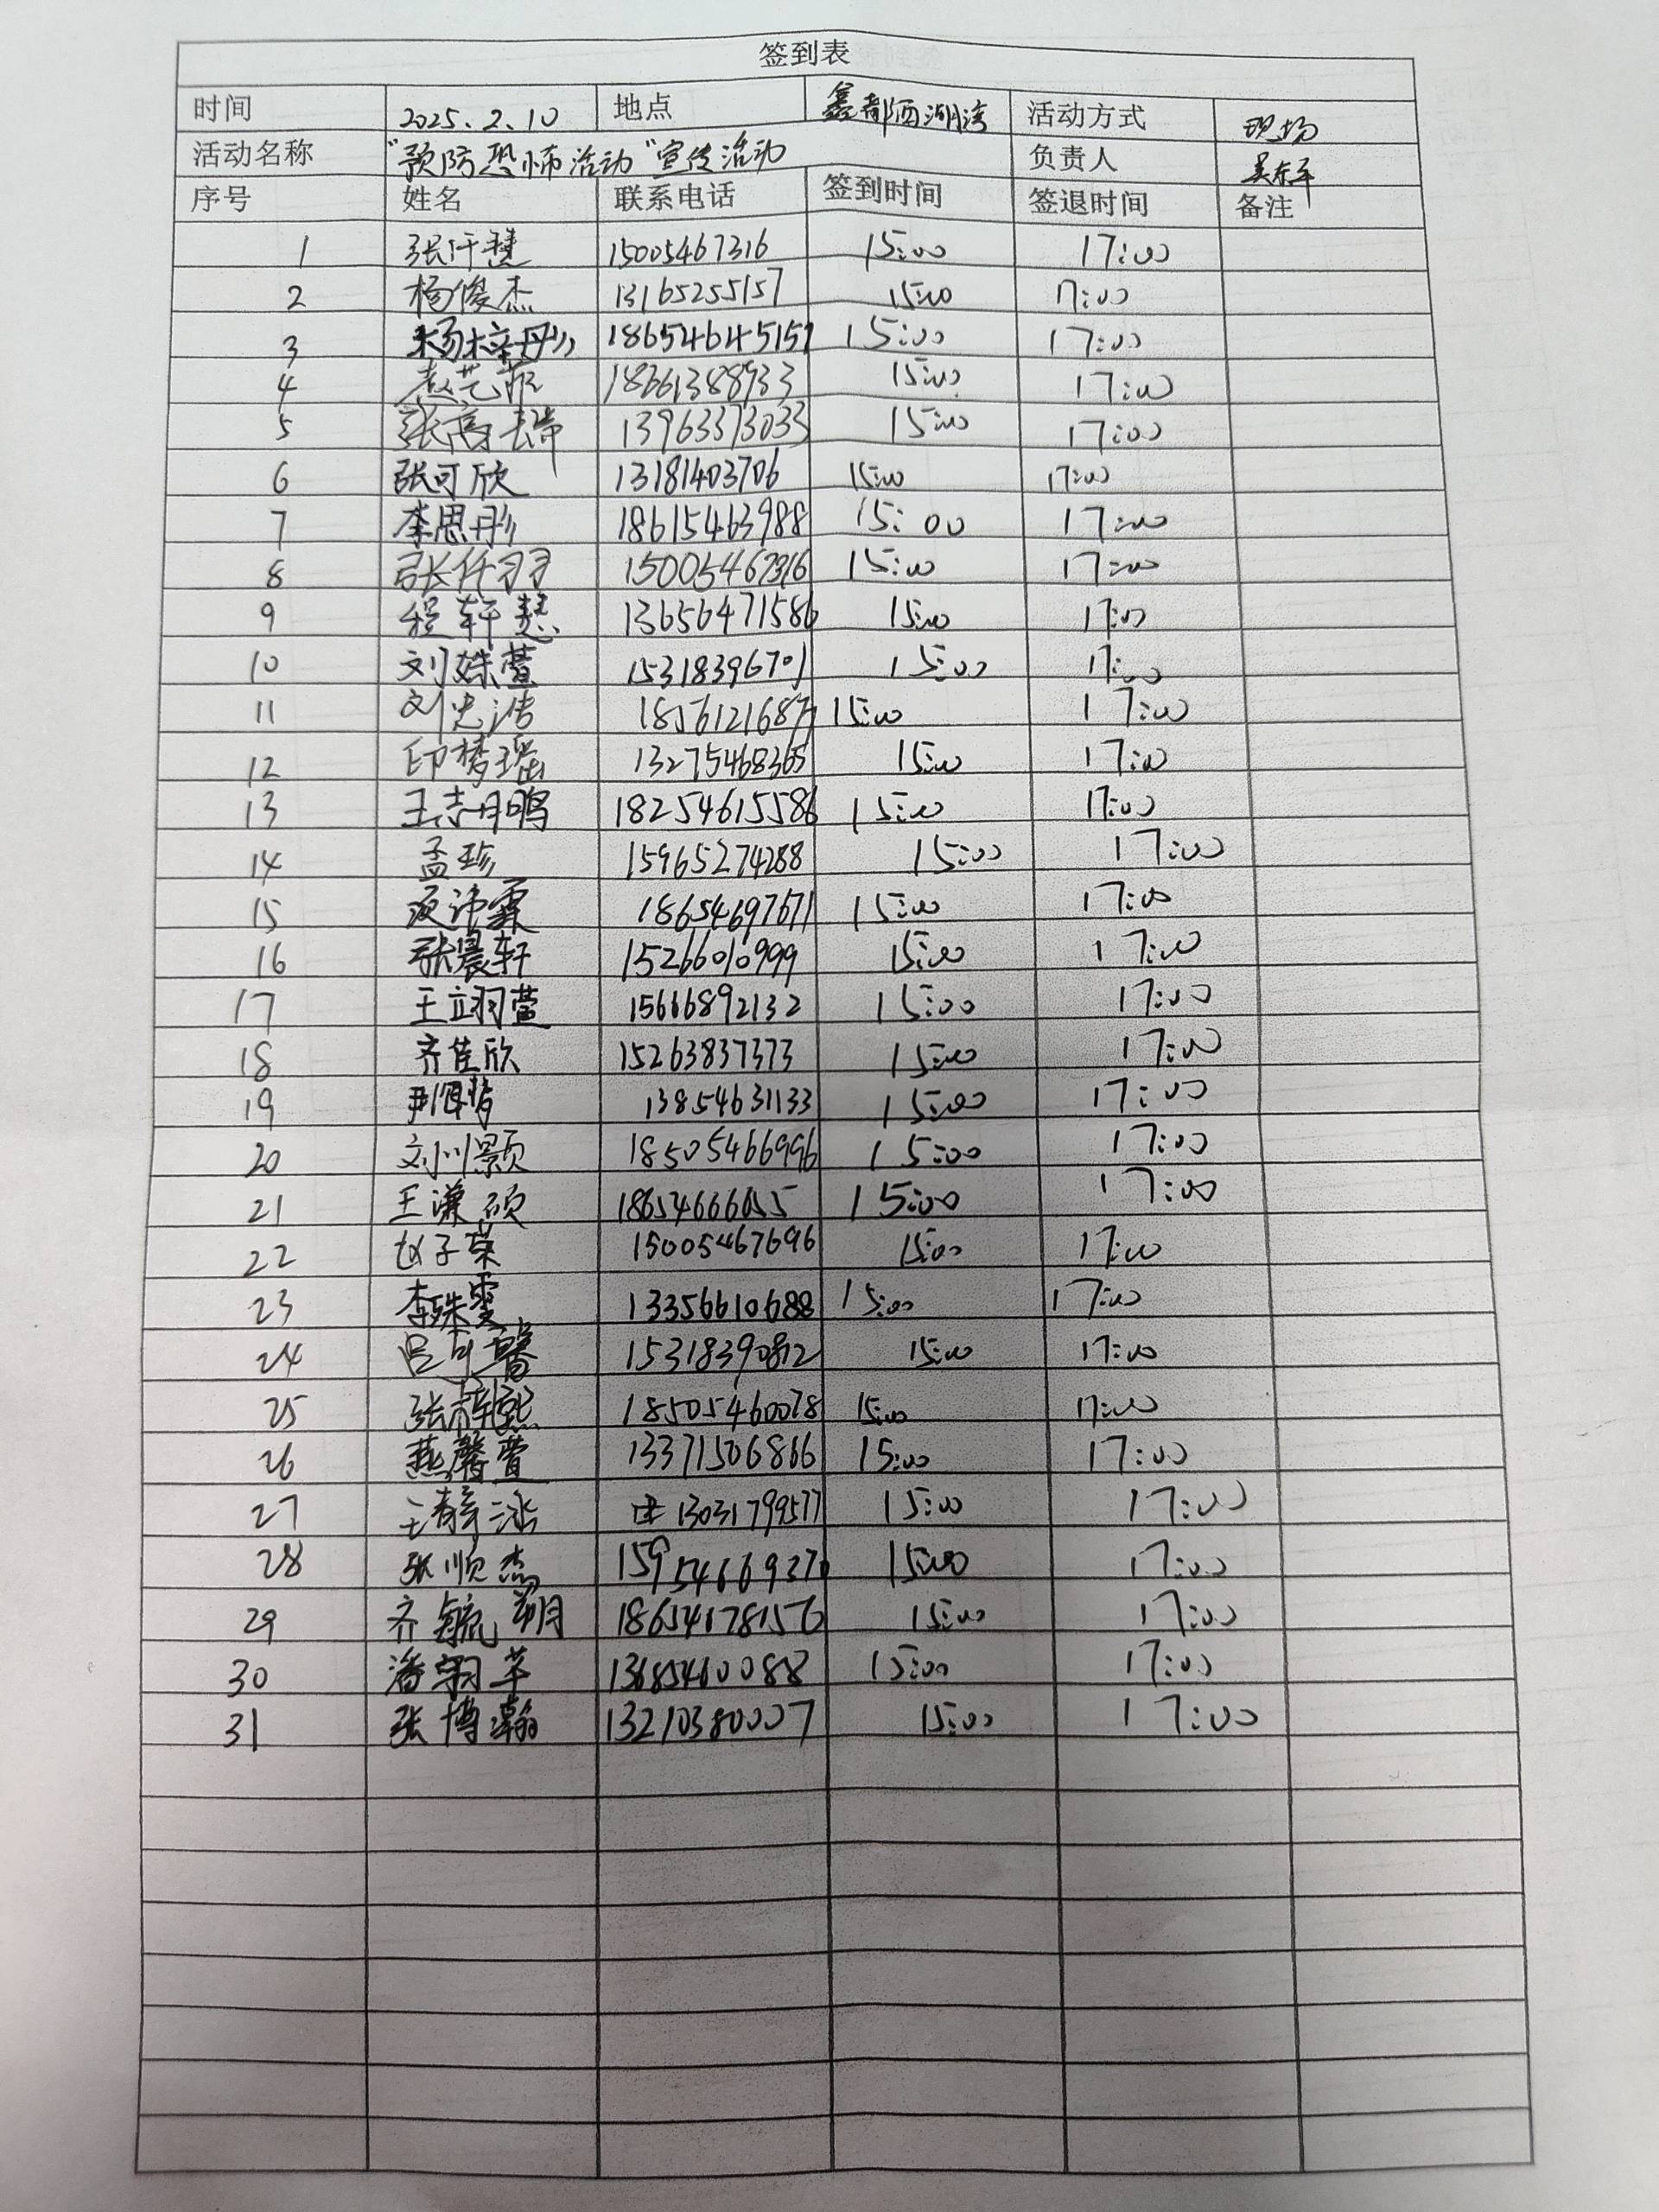 签到表
时间 2025.2.10 地点 鑫都西湖湾 活动方式 现场
活动名称 "预防恐怖活动"宣传活动 负责人 吴东平
序号 姓名 联系电话 签到时间 签退时间 备注
1 张仟慧 15005467316 15:00 17:00
2 杨俊杰 13165255157 15:00 17:00
3 杨梓彤 18654645157 15:00 17:00
4 赵艺菲 18661388933 15:00 17:00
5 张高瑞 13963373033 15:00 17:00
6 张可欣 13181403706 15:00 17:00
7 李思彤 18615463988 15:00 17:00
8 张仟羽 15005467316 15:00 17:00
9 程轩慧 13656471586 15:00 17:00
10 刘姝萱 15318396701 15:00 17:00
11 刘忠浩 1856121687 15:00 17:00
12 印梦瑶 13275468365 15:00 17:00
13 王志鹏 18254615586 15:00 17:00
14 孟珍 15965274288 15:00 17:00
15 18654697671 15:00 17:00
16 张晨轩 15266010999 15:00 17:00
17 王立羽萱 15666892132 15:00 17:00
18 齐佳欣 15263837373 15:00 17:00
19 13854631133 15:00 17:00
20 刘川颢 18505466996 15:00 17:00
21 王谦硕 18654666655 15:00 17:00
22 赵子荣 15005467696 15:00 17:00
23 李姝雯 13356610688 15:00 17:00
24 吕可馨 15318390812 15:00 17:00
25 张梓熙 18505460078 15:00 17:00
26 燕馨萱 13371506866 15:00 17:00
27 王静泓 13031799577 15:00 17:00
28 张顺杰 15954669370 15:00 17:00
29 齐毓玥 18654178156 15:00 17:00
30 潘羽芊 13685460088 15:00 17:00
31 张博瀚 13210380007 15:00 17:00